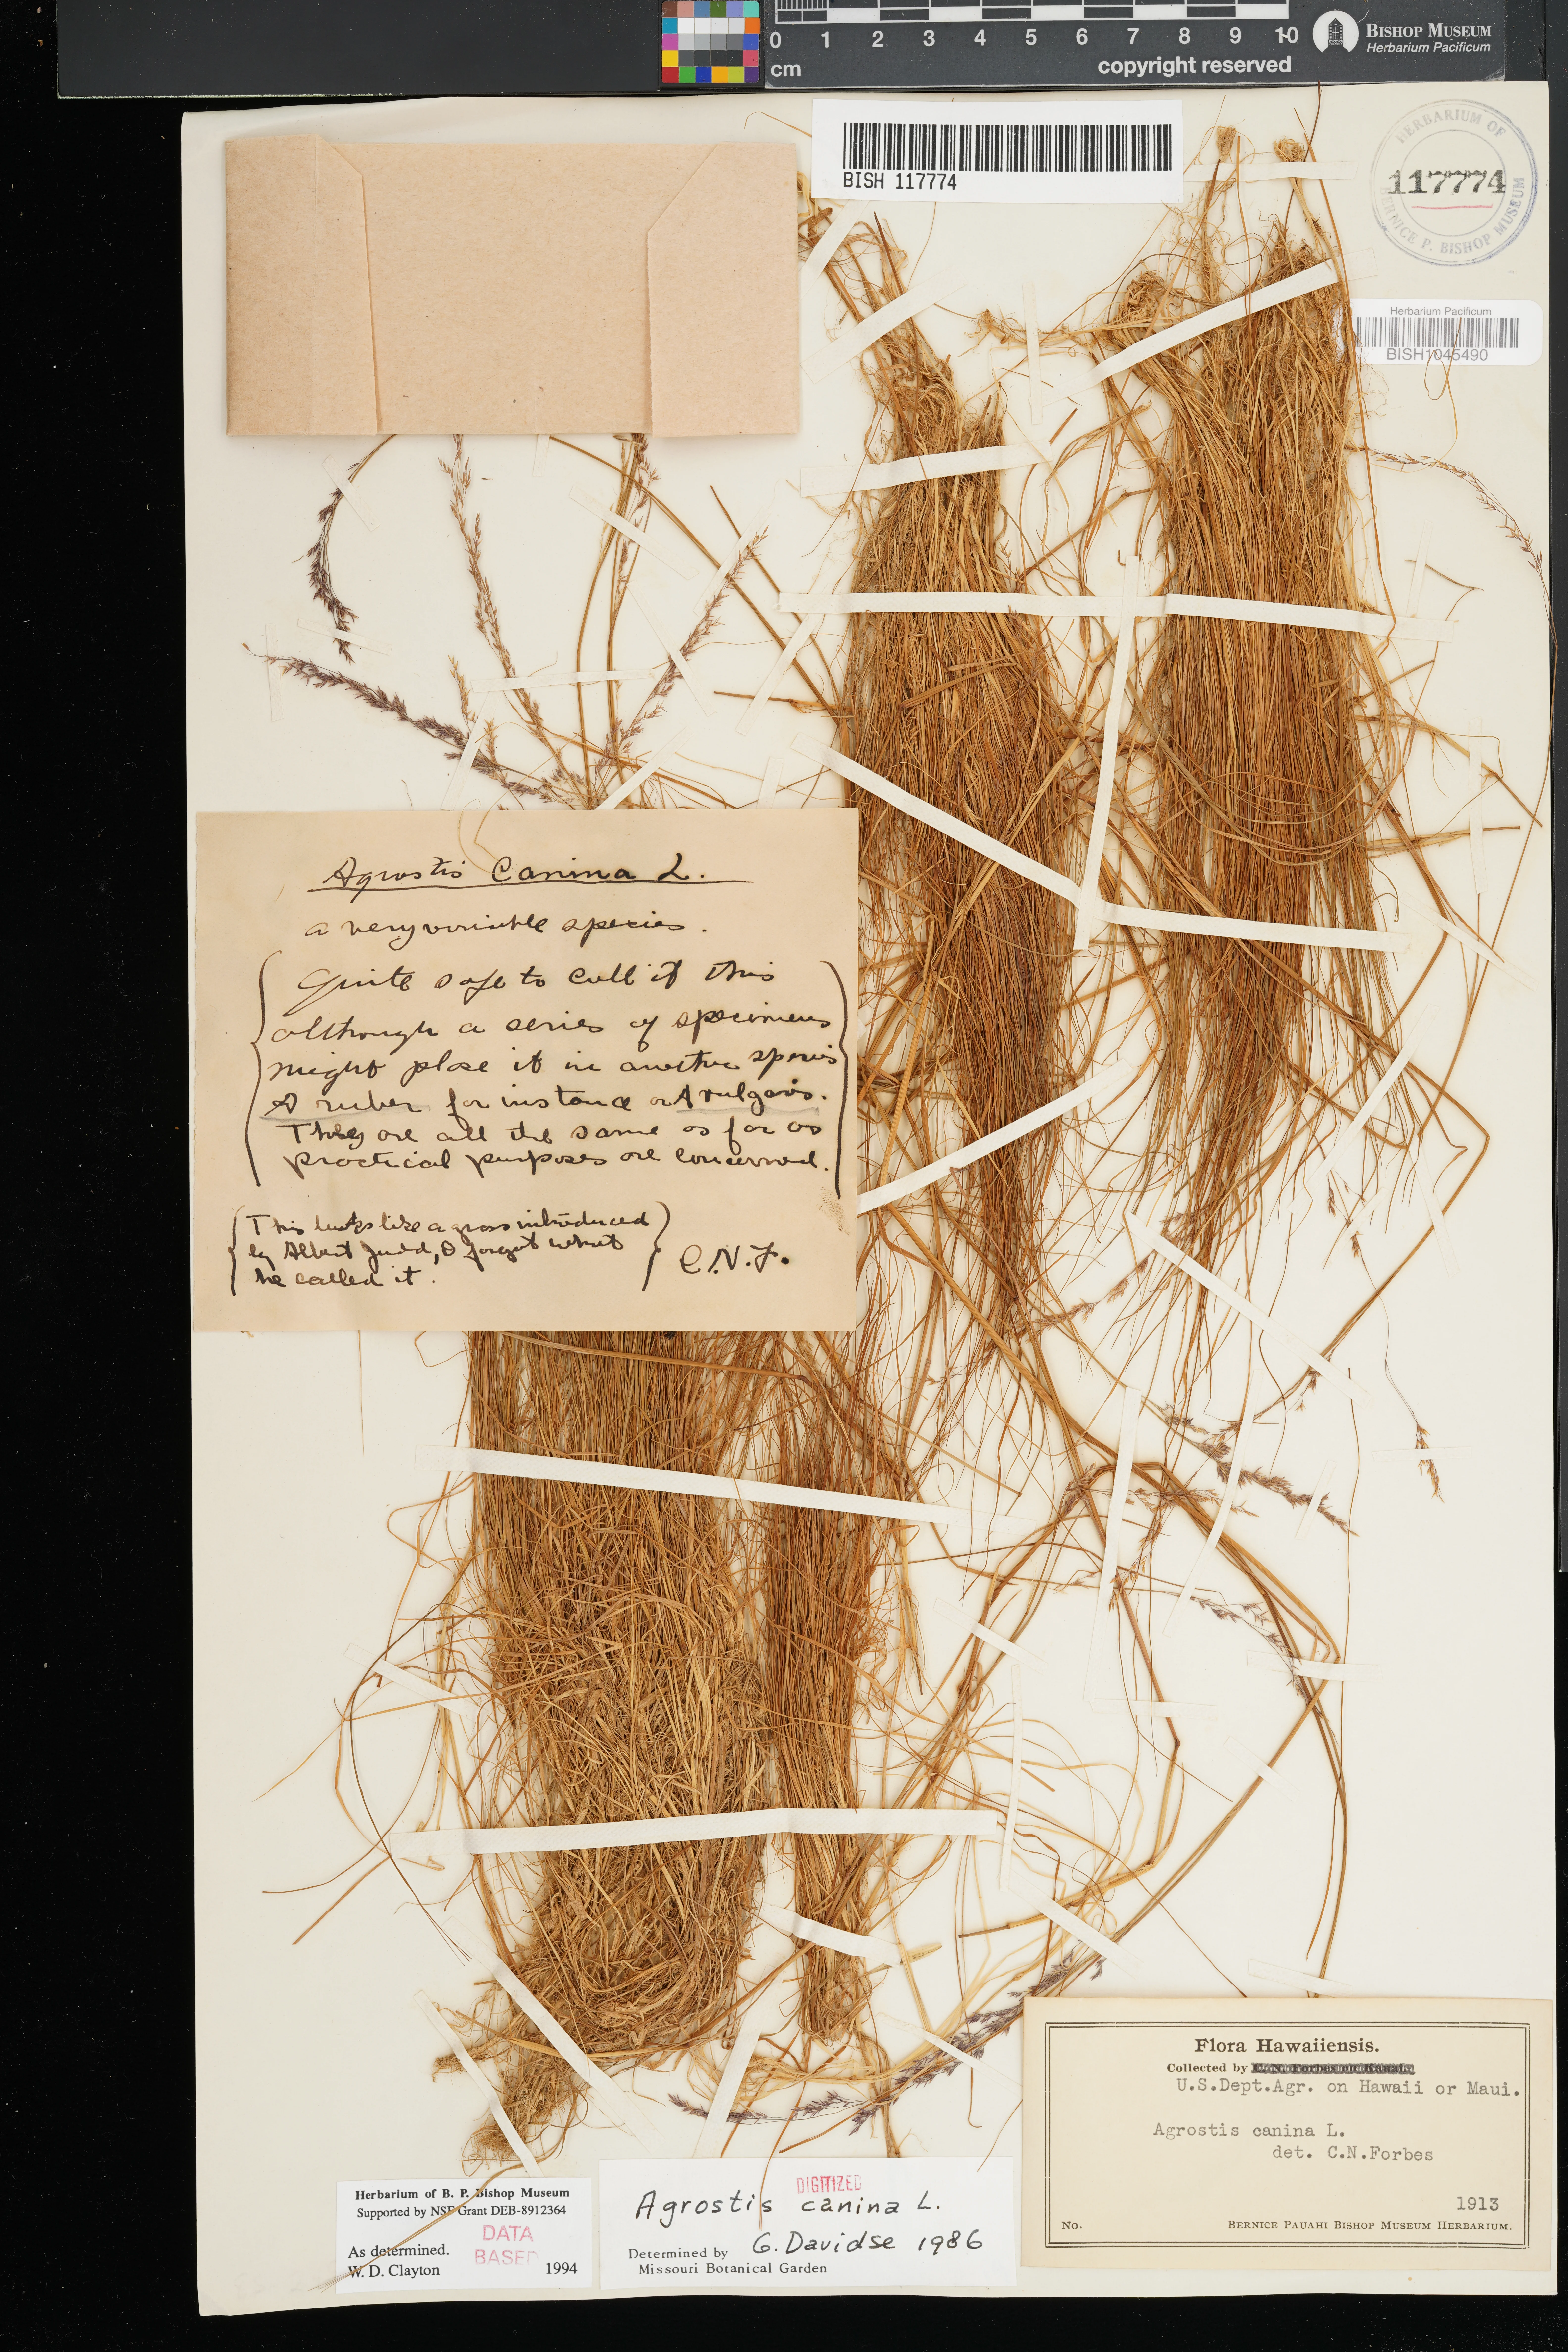 0 1 2 3 4 5 6 7 8 9 10
cm
copyright reserved
BISHOP MUSEUM
Herbarium Pacificum
BISH 117774
HERBARIUM OF
117774
BERNICE P. BISHOP MUSEUM
Herbarium Pacificum
BISH1045490
Agrostis Canina L.
a very variable species.
Quite safe to call it this
although a series of specimens
might place it in another species
A ruber for instance or A vulgaris.
They are all the same as far as
practical purposes are concerned.
This looks like a grass introduced
by Albert Judd, I forgot what
he called it.
C.N.F.
Flora Hawaiiensis.
Collected by C. N. Forbes on Kauai.
U.S.Dept.Agr. on Hawaii or Maui.
Agrostis canina L.
det. C.N.Forbes
1913
No.
BERNICE PAUAHI BISHOP MUSEUM HERBARIUM.
Herbarium of B. P. Bishop Museum
Supported by NSF Grant DEB-8912364
DATA
BASED
As determined.
W. D. Clayton
1994
DIGITIZED
Agrostis canina L.
G. Davidse 1986
Determined by
Missouri Botanical Garden